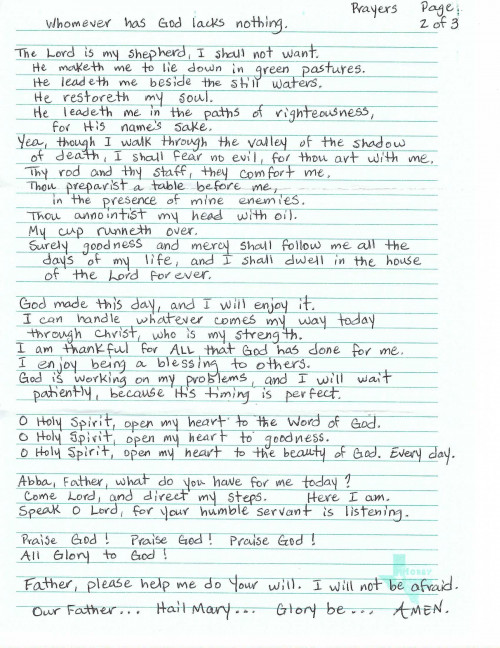 Prayers Page:
Whomever has God lacks nothing. 2 of 3
The Lord is my shepherd, I shall not want.
He maketh me to lie down in green pastures.
He leadeth me beside the still waters.
He restoreth my soul.
He leadeth me in the paths of righteousness,
for His name's sake.
Yea, though I walk through the valley of the shadow
of death, I shall fear no evil, for thou art with me.
Thy rod and thy staff, they comfort me.
Thou preparist a table before me,
in the presence of mine enemies.
Thou annointist my head with oil.
My cup runneth over.
Surely goodness and mercy shall follow me all the
days of my life, and I shall dwell in the house
of the Lord forever.
God made this day, and I will enjoy it.
I can handle whatever comes my way today
through Christ, who is my strength.
I am thankful for ALL that God has done for me.
I enjoy being a blessing to others.
God is working on my problems, and I will wait
patiently, because His timing is perfect.
O Holy Spirit, open my heart to the Word of God.
O Holy Spirit, open my heart to goodness.
O Holy Spirit, open my heart to the beauty of God. Every day.
Abba, Father, what do you have for me today?
Come Lord, and direct my steps. Here I am.
Speak O Lord, for your humble servant is listening.
Praise God! Praise God! Praise God!
All Glory to God!
Father, please help me do Your will. I will not be afraid.
Our Father... Hail Mary... Glory be... AMEN.